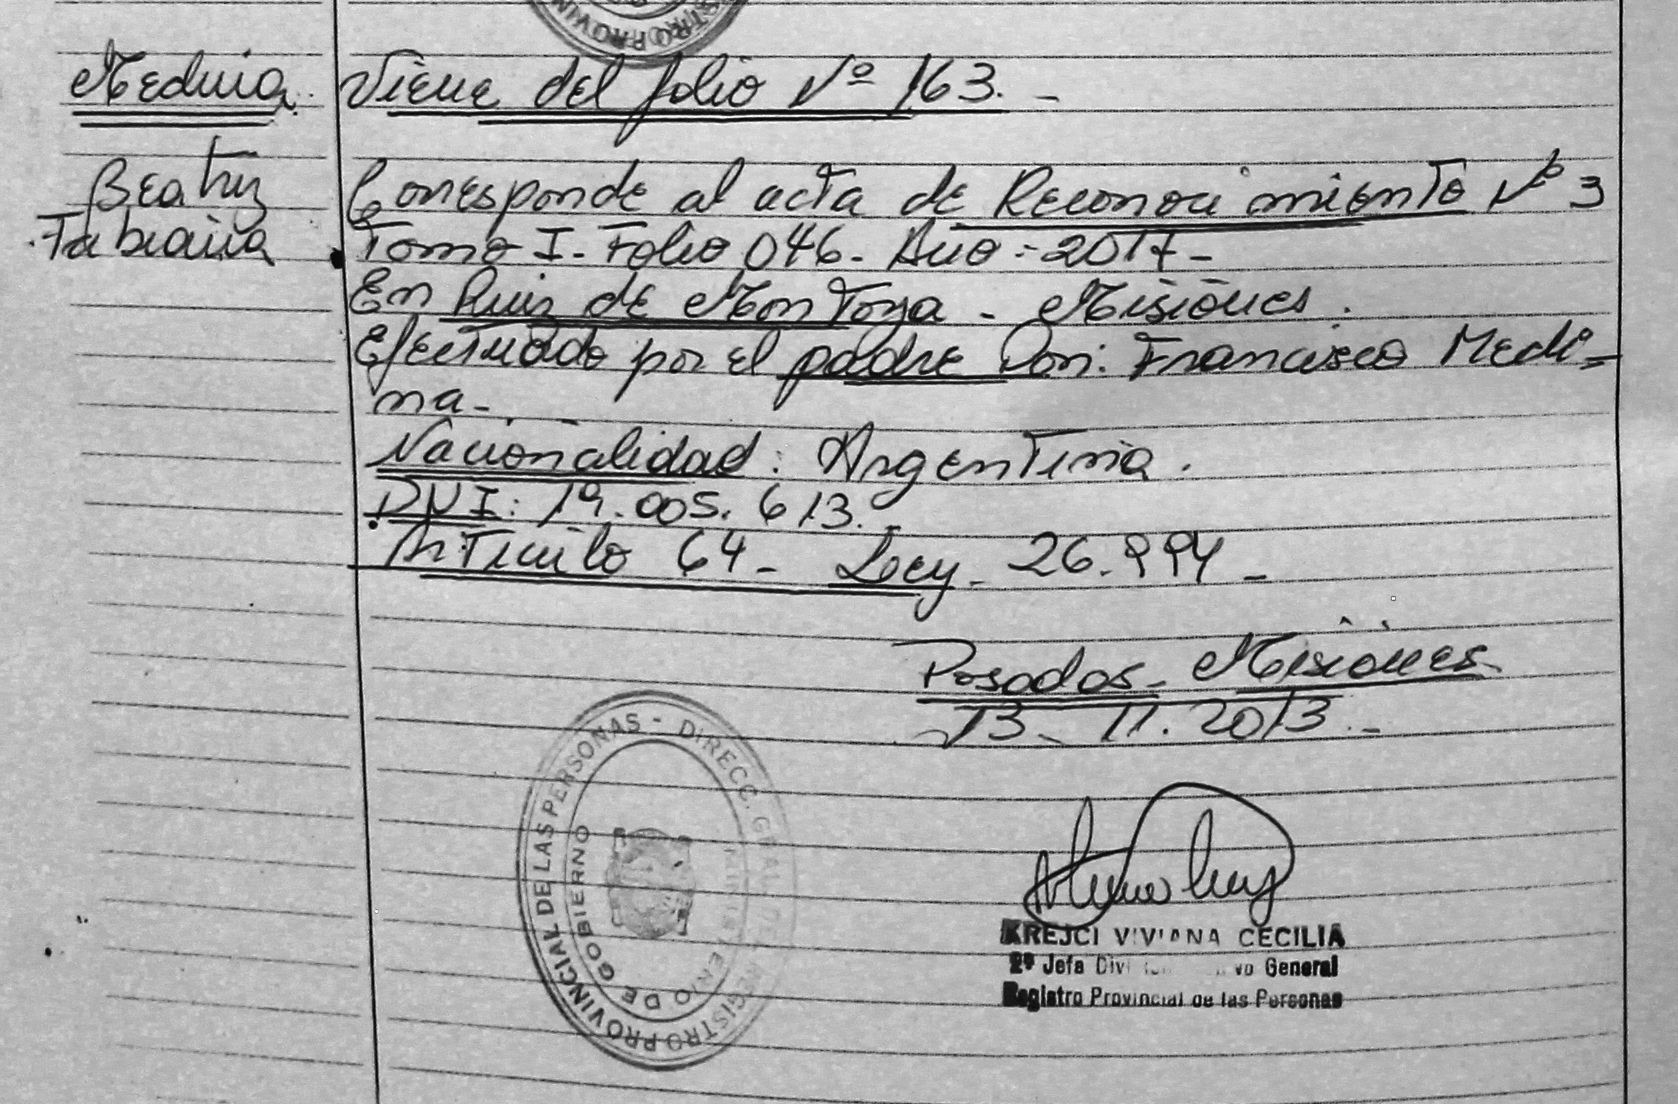 Medina
Viene del folio Nº 163. -
Beatriz
Fabiana
Corresponde al acta de Reconocimiento Nº 3
Tomo I - Folio 046 - Año: 2017 -
En Ruiz de Montoya - Misiones.
Efectuado por el padre Don: Francisco Medi-
na -
Nacionalidad: Argentina.
DNI: 19.005.613.
Articulo 64 - Ley - 26.994 -
Posadas - Misiones
13 - 11. 2013 -
REGISTRO PROVINCIAL DE LAS PERSONAS - DIRECC. GRAL. DEL
MINISTERIO DE GOBIERNO
KREJCI VIVIANA CECILIA
2º Jefa General
Registro Provincial de las Personas